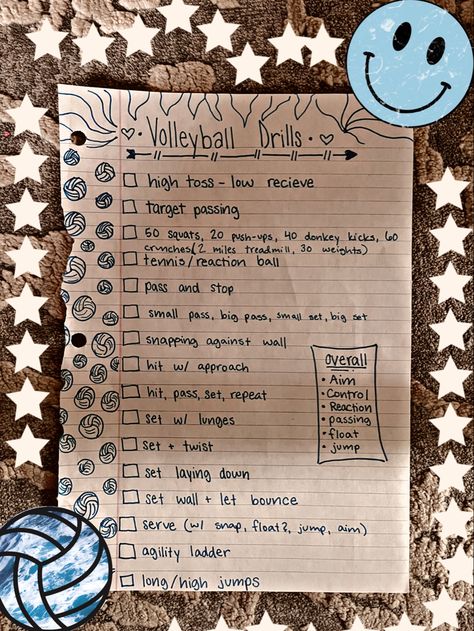 Volleyball Drills
high toss - low recieve
target passing
50 squats, 20 push-ups, 40 donkey kicks, 60
crunches (2 miles treadmill, 30 weights)
tennis/reaction ball
pass and stop
small pass, big pass, small set, big set
snapping against wall
hit w/ approach
hit, pass, set, repeat
set w/ lunges
set + twist
set laying down
set wall + let bounce
serve (w/ snap, float?, jump, aim)
agility ladder
long/high jumps
overall
• Aim
• Control
• Reaction
• passing
• float
• jump